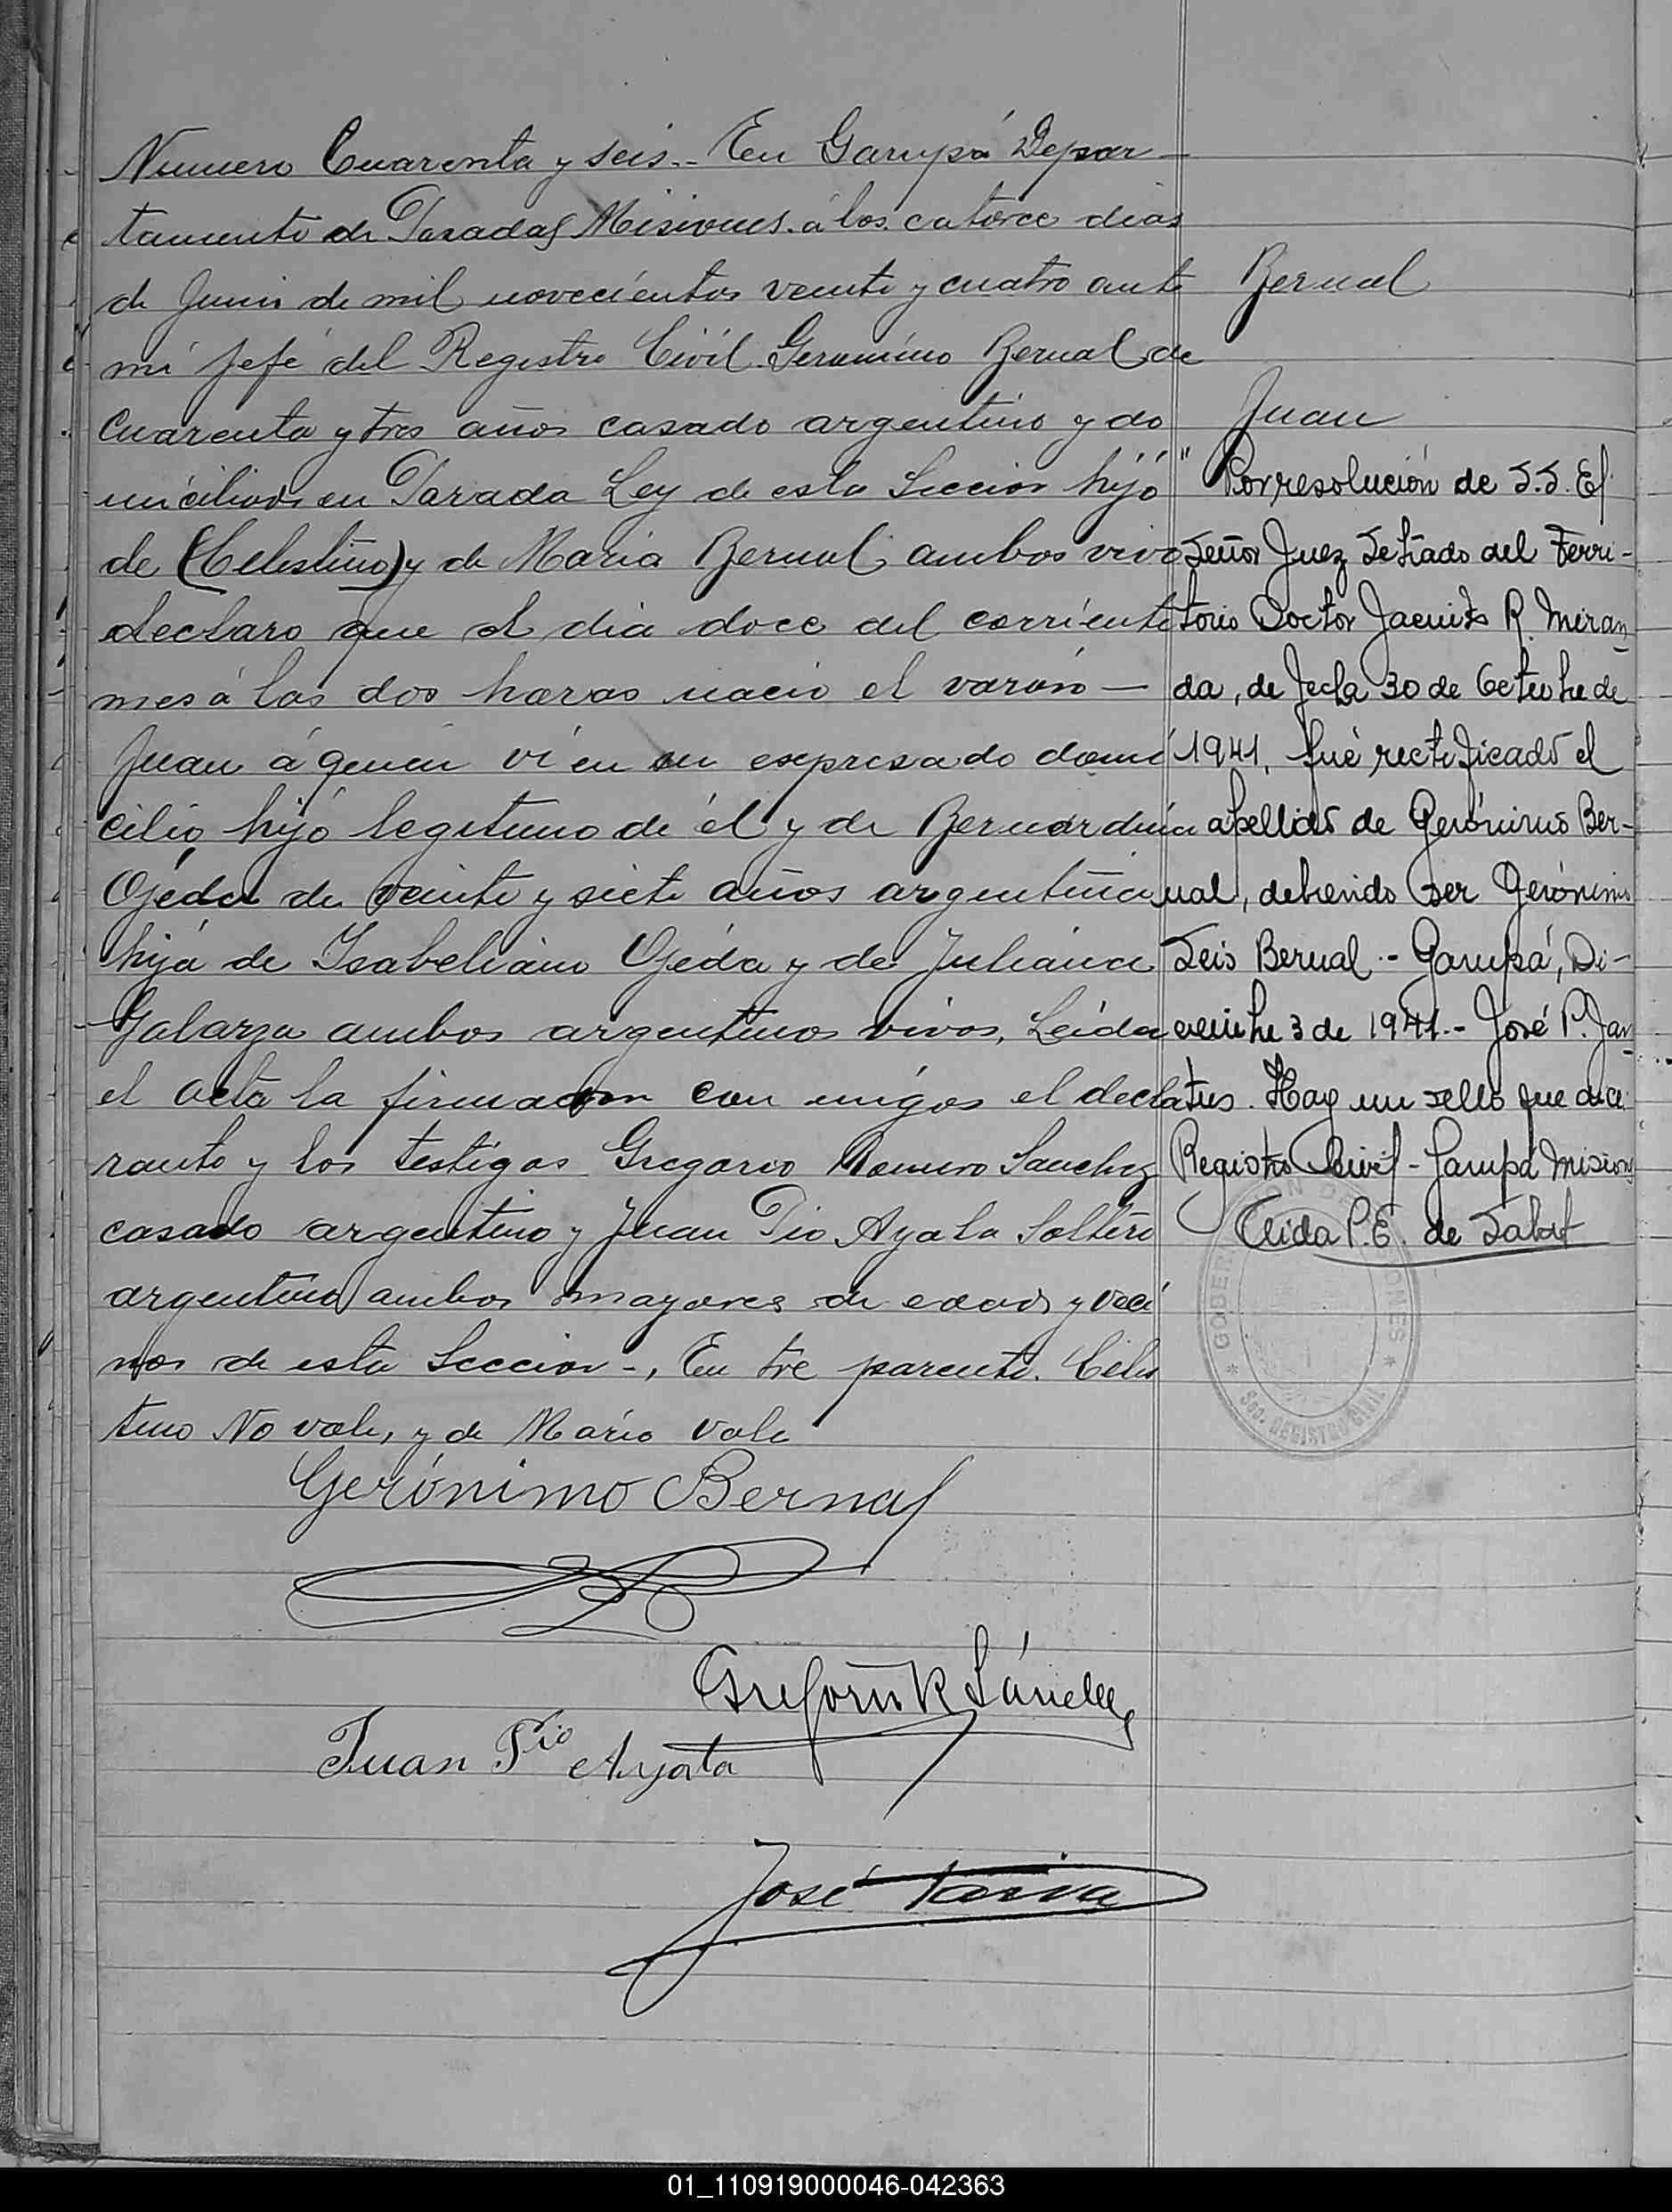 Numero Cuarenta y seis.- En Garupá Depar-
tamento de Posadas Misiones. á los catorce dias
de Junio de mil novecientos veinte y cuatro ante
mi Jefe del Registro Civil Geromino Bernal de
cuarenta y tres años casado argentino y do
miciliado en Parada Ley de esta Seccion hijo
de (Celestino) y de Maria Bernal ambos vivo
declaro que el dia doce del corriente
mes á las dos horas nacio el varón —
Juan á quien vi en su expresado domi
cilio hijo legitimo de él y de Bernardina
Ojeda de veinte y siete años argentina
hija de Isabeliano Ojeda y de Juliana
Galarza ambos argentinos vivos, Leida
el acta la firmaron con migo el decla
rante y los testigos Gregorio Romero Sanchez
casado argentino y Juan Pio Ayala Soltero
argentino ambos mayores de edad y veci
nos de esta Seccion -, En tre parente. Celes
tino No vale, y de Maria Vale
Gerónimo Bernal
Gregorio R Sánchez
Juan Pio Ayala
José
Bernal
Juan
" Por resolución de S.S. El
Señor Juez Letrado del Terri-
torio Doctor Jacinto R. Miran
da, de fecha 30 de Octubre de
1941, fué rectificado el
apellido de Gerónimo Ber-
nal, debiendo ser Gerónimo
Seis Bernal.- Garupá, Di-
ciembre 3 de 1941.- José P. Jan
tus. Hay un sello que dice
Registro Civil - Garupá Misiones
Elida P.E. de
GOBERNACION DE MISIONES
Sec. REGISTRO CIVIL
01_110919000046-042363